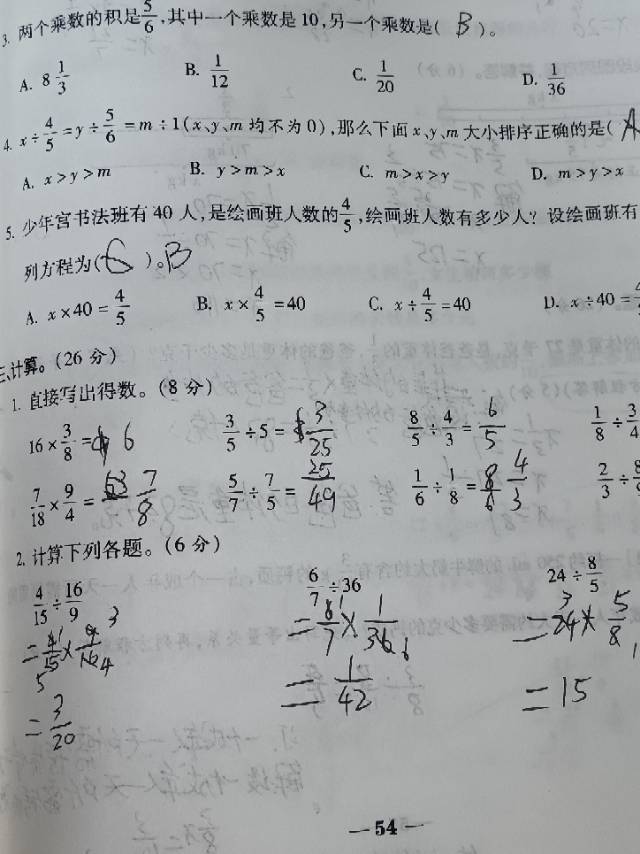 3. 两个乘数的积是5/6,其中一个乘数是10,另一个乘数是( B )。
A. 8 1/3 B. 1/12 C. 1/20 D. 1/36
4. x÷4/5=y÷5/6=m÷1(x、y、m均不为0),那么下面x、y、m大小排序正确的是( A
A. x>y>m B. y>m>x C. m>x>y D. m>y>x
5. 少年宫书法班有40人,是绘画班人数的4/5,绘画班人数有多少人?设绘画班有
列方程为( )。B
A. x×40=4/5 B. x×4/5=40 C. x÷4/5=40 D. x÷40=
三、计算。(26分)
1. 直接写出得数。(8分)
16×3/8= 6 3/5÷5= 3/25 8/5÷4/3= 6/5 1/8÷3/4
7/18×9/4= 7/8 5/7÷7/5= 25/49 1/6÷1/8= 8/6 4/3 2/3÷
2. 计算下列各题。(6分)
4/15÷16/9 6/7÷36 24÷8/5
=4/15×9/16 =6/7×1/36 =24×5/8
=3/20 =1/42 =15
—54—